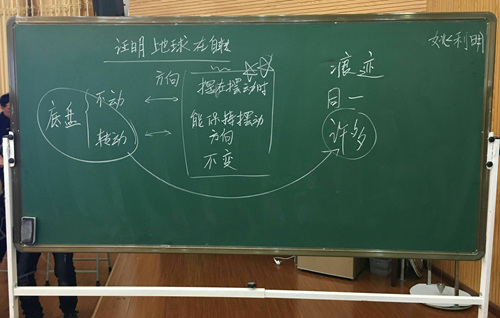 证明地球在自转
姚利明
方向
底盘
不动
转动
摆在摆动时
能保持摆动
方向
不变
痕迹
同一
许多